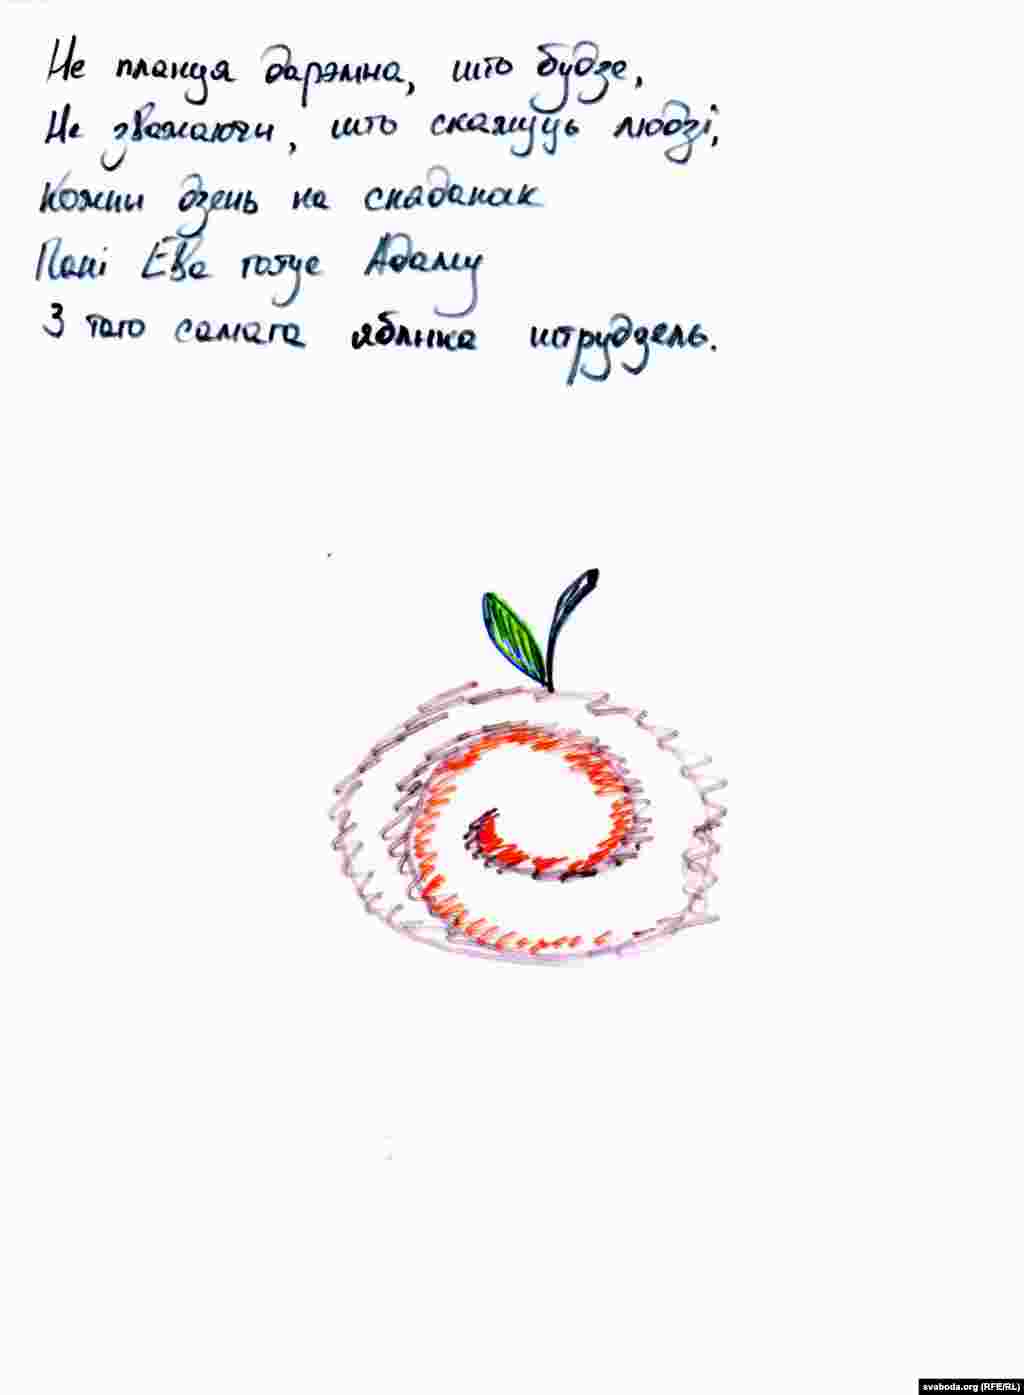 Не плануя дарэмна, што будзе,
Не зважаючы, што скажуць людзі,
Кожны дзень на сняданак
Пані Ева гатуе Адаму
З таго самага яблыка штрудзель.
svaboda.org (RFE/RL)